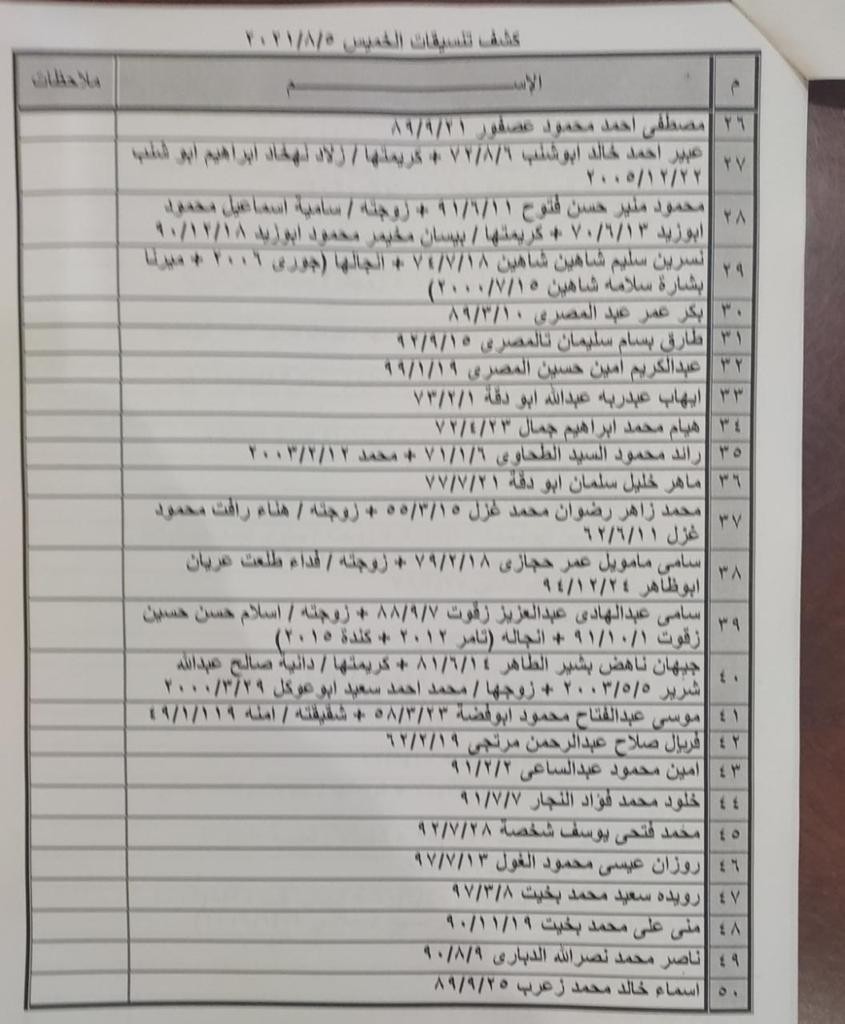 كشف تنسيقات الخميس ٢٠٢١/٨/٥
م الإســـــــــم ملاحظات
٢٦ مصطفى احمد محمود عصفور ٨٩/٩/٢١
٢٧ عبير احمد خالد ابوشنب ٧٢/٨/٦ + كريمتها / زلاد نهاد ابراهيم ابو شنب
٢٠٠٥/١٢/٢٢
٢٨ محمود منير حسن فتوح ٩١/٦/١١ + زوجته / سامية اسماعيل محمود
ابوزيد ٧٠/٦/١٣ + كريمتها / بيسان مخيمر محمود ابوزيد ٩٠/١٢/١٨
٢٩ نسرين سليم شاهين شاهين ٧٤/٧/١٨ + انجالها (جورى ٢٠٠٦ + ميرنا
بشارة سلامه شاهين ٢٠٠٠/٧/١٥)
٣٠ بكر عمر عبد المصرى ٨٩/٣/١٠
٣١ طارق بسام سليمان تالمصرى ٩٢/٩/١٥
٣٢ عبدالكريم امين حسين المصرى ٩٩/١/١٩
٣٣ ايهاب عبدربه عبدالله ابو دقة ٧٣/٢/١
٣٤ هيام محمد ابراهيم جمال ٧٢/٤/٢٣
٣٥ رائد محمود السيد الطحاوى ٧١/١/٦ + محمد ٢٠٠٣/٢/١٢
٣٦ ماهر خليل سلمان ابو دقة ٧٧/٧/٢١
٣٧ محمد زاهر رضوان محمد غزل ٥٥/٣/١٥ + زوجته / هناء رافت محمود
غزل ٦٢/٦/١١
٣٨ سامى مامويل عمر حجازى ٧٩/٢/١٨ + زوجته / فداء طلعت عريان
ابوظاهر ٩٤/١٢/٢٤
٣٩ سامى عبدالهادى عبدالعزيز زقوت ٨٨/٩/٧ + زوجته / اسلام حسن حسين
زقوت ٩١/١٠/١ + انجاله (تامر ٢٠١٢ + كندة ٢٠١٥)
٤٠ جيهان ناهض بشير الطاهر ٨١/٦/١٤ + كريمتها / دانية صالح عبدالله
شرير ٢٠٠٣/٥/٥ + زوجها / محمد احمد سعيد ابوعوكل ٢٠٠٠/٣/٢٩
٤١ موسى عبدالفتاح محمود ابوفضة ٥٨/٣/٢٣ + شقيقته / امنه ٤٩/١/١١٩
٤٢ فريال صلاح عبدالرحمن مرتجى ٦٢/٢/١٩
٤٣ امين محمود عبدالساعى ٩١/٢/٢
٤٤ خلود محمد فؤاد النجار ٩١/٧/٧
٤٥ محمد فتحى يوسف شخصة ٩٢/٧/٢٨
٤٦ روزان عيسى محمود الغول ٩٧/٧/١٣
٤٧ رويده سعيد محمد بخيت ٩٧/٣/٨
٤٨ منى على محمد بخيت ٩٠/١١/١٩
٤٩ ناصر محمد نصرالله الدبارى ٩٠/٨/٩
٥٠ اسماء خالد محمد زعرب ٨٩/٩/٢٥